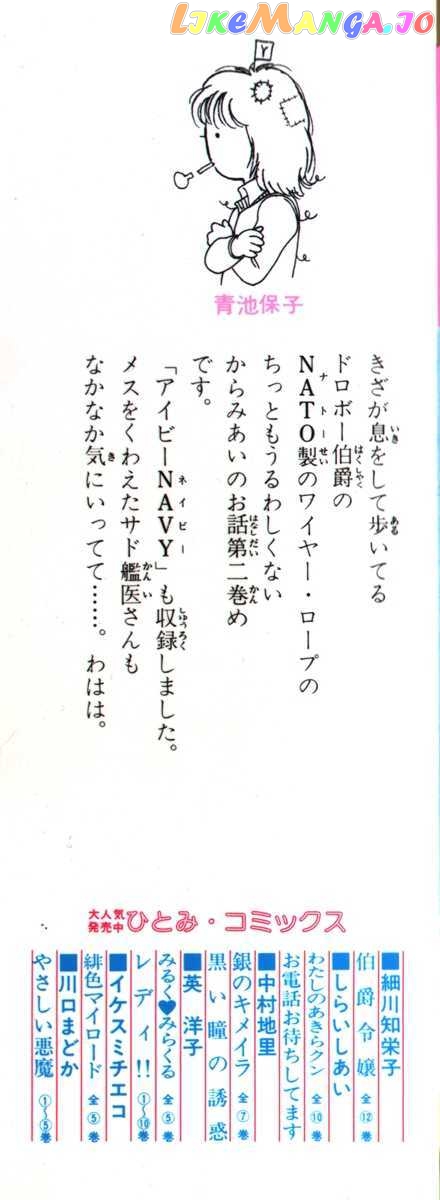 LIKEMANGA.IO
Y
青池保子
きざが息をして歩いてる
ドロボー伯爵の
NATO製のワイヤー・ロープの
ちっともうるわしくない
からみあいのお話第二巻め
です。
「アイビーNAVY」も収録しました。
メスをくわえたサド艦医さんも
なかなか気にいってて……。わはは。
大人気発売中 ひとみ・コミックス
■細川知栄子
伯爵令嬢 全⑫巻
■しらいしあい
わたしのあきらクン 全⑩巻
お電話お待ちしてます
■中村地里
銀のキメイラ 全⑦巻
黒い瞳の誘惑
■英洋子
みるく♥みらくる 全⑤巻
レディ!! ①〜⑩巻
■イケスミチエコ
緋色マイロード 全⑤巻
■川口まどか
やさしい悪魔 ①〜⑤巻